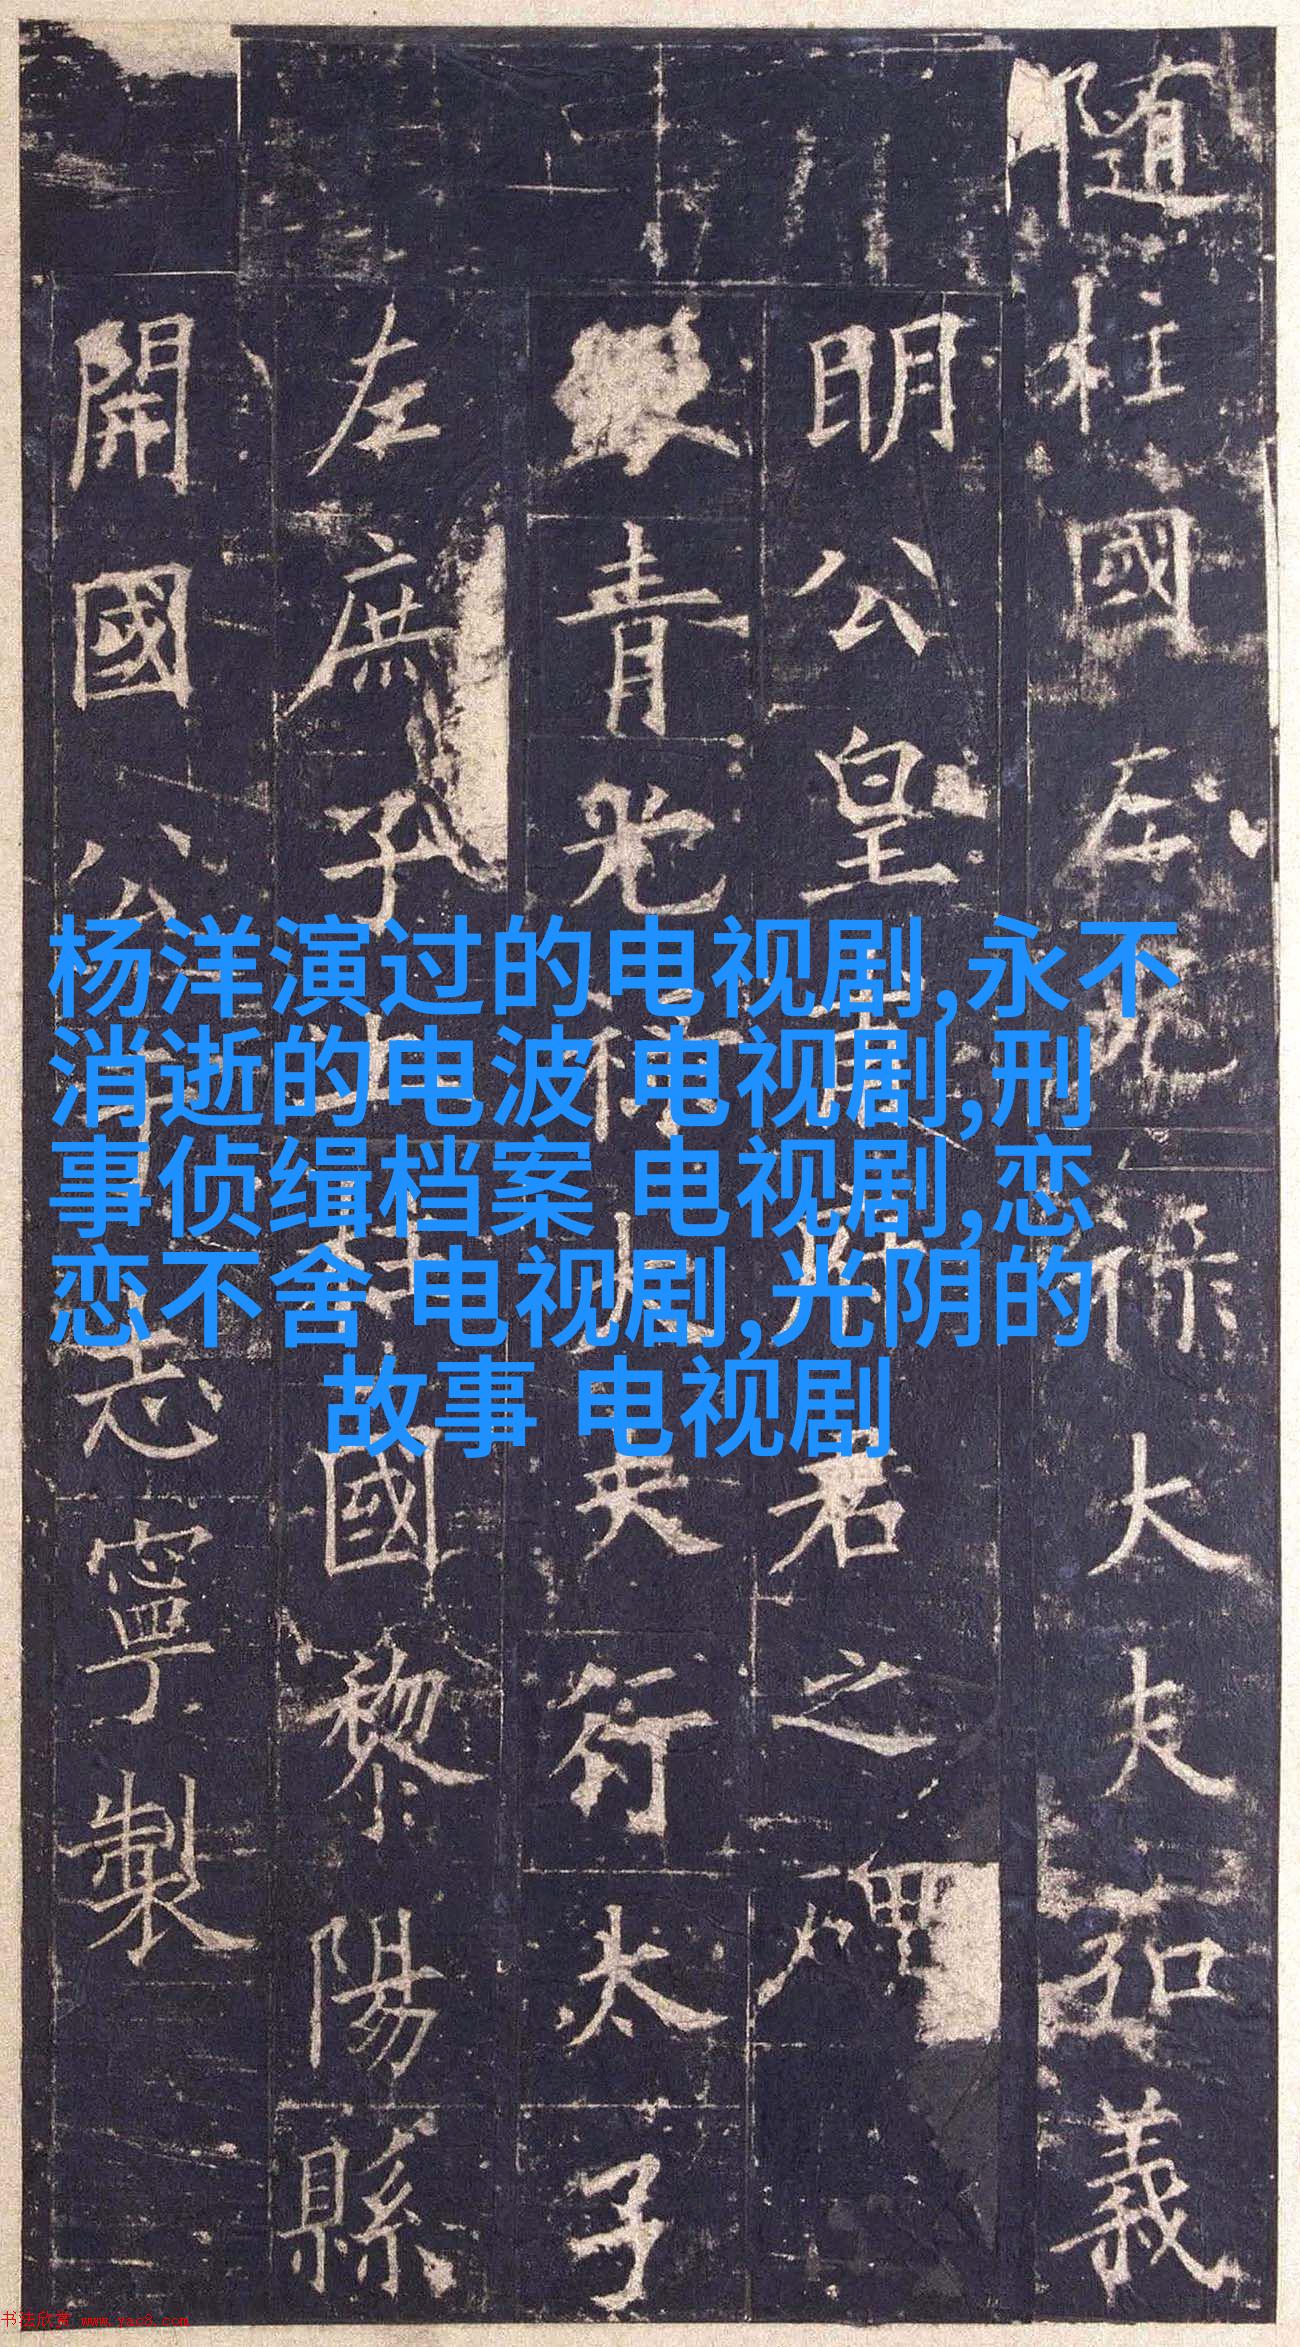 隨柱國左光祿大夫弘義
明公皇君之碑
青光大夫行太子
左庶子上國黎陽縣
開國公志寧製
杨洋演过的电视剧,永不
消逝的电波 电视剧,刑
事侦缉档案 电视剧,恋
恋不舍 电视剧,光阴的
故事 电视剧
书法欣赏 www.yac8.com